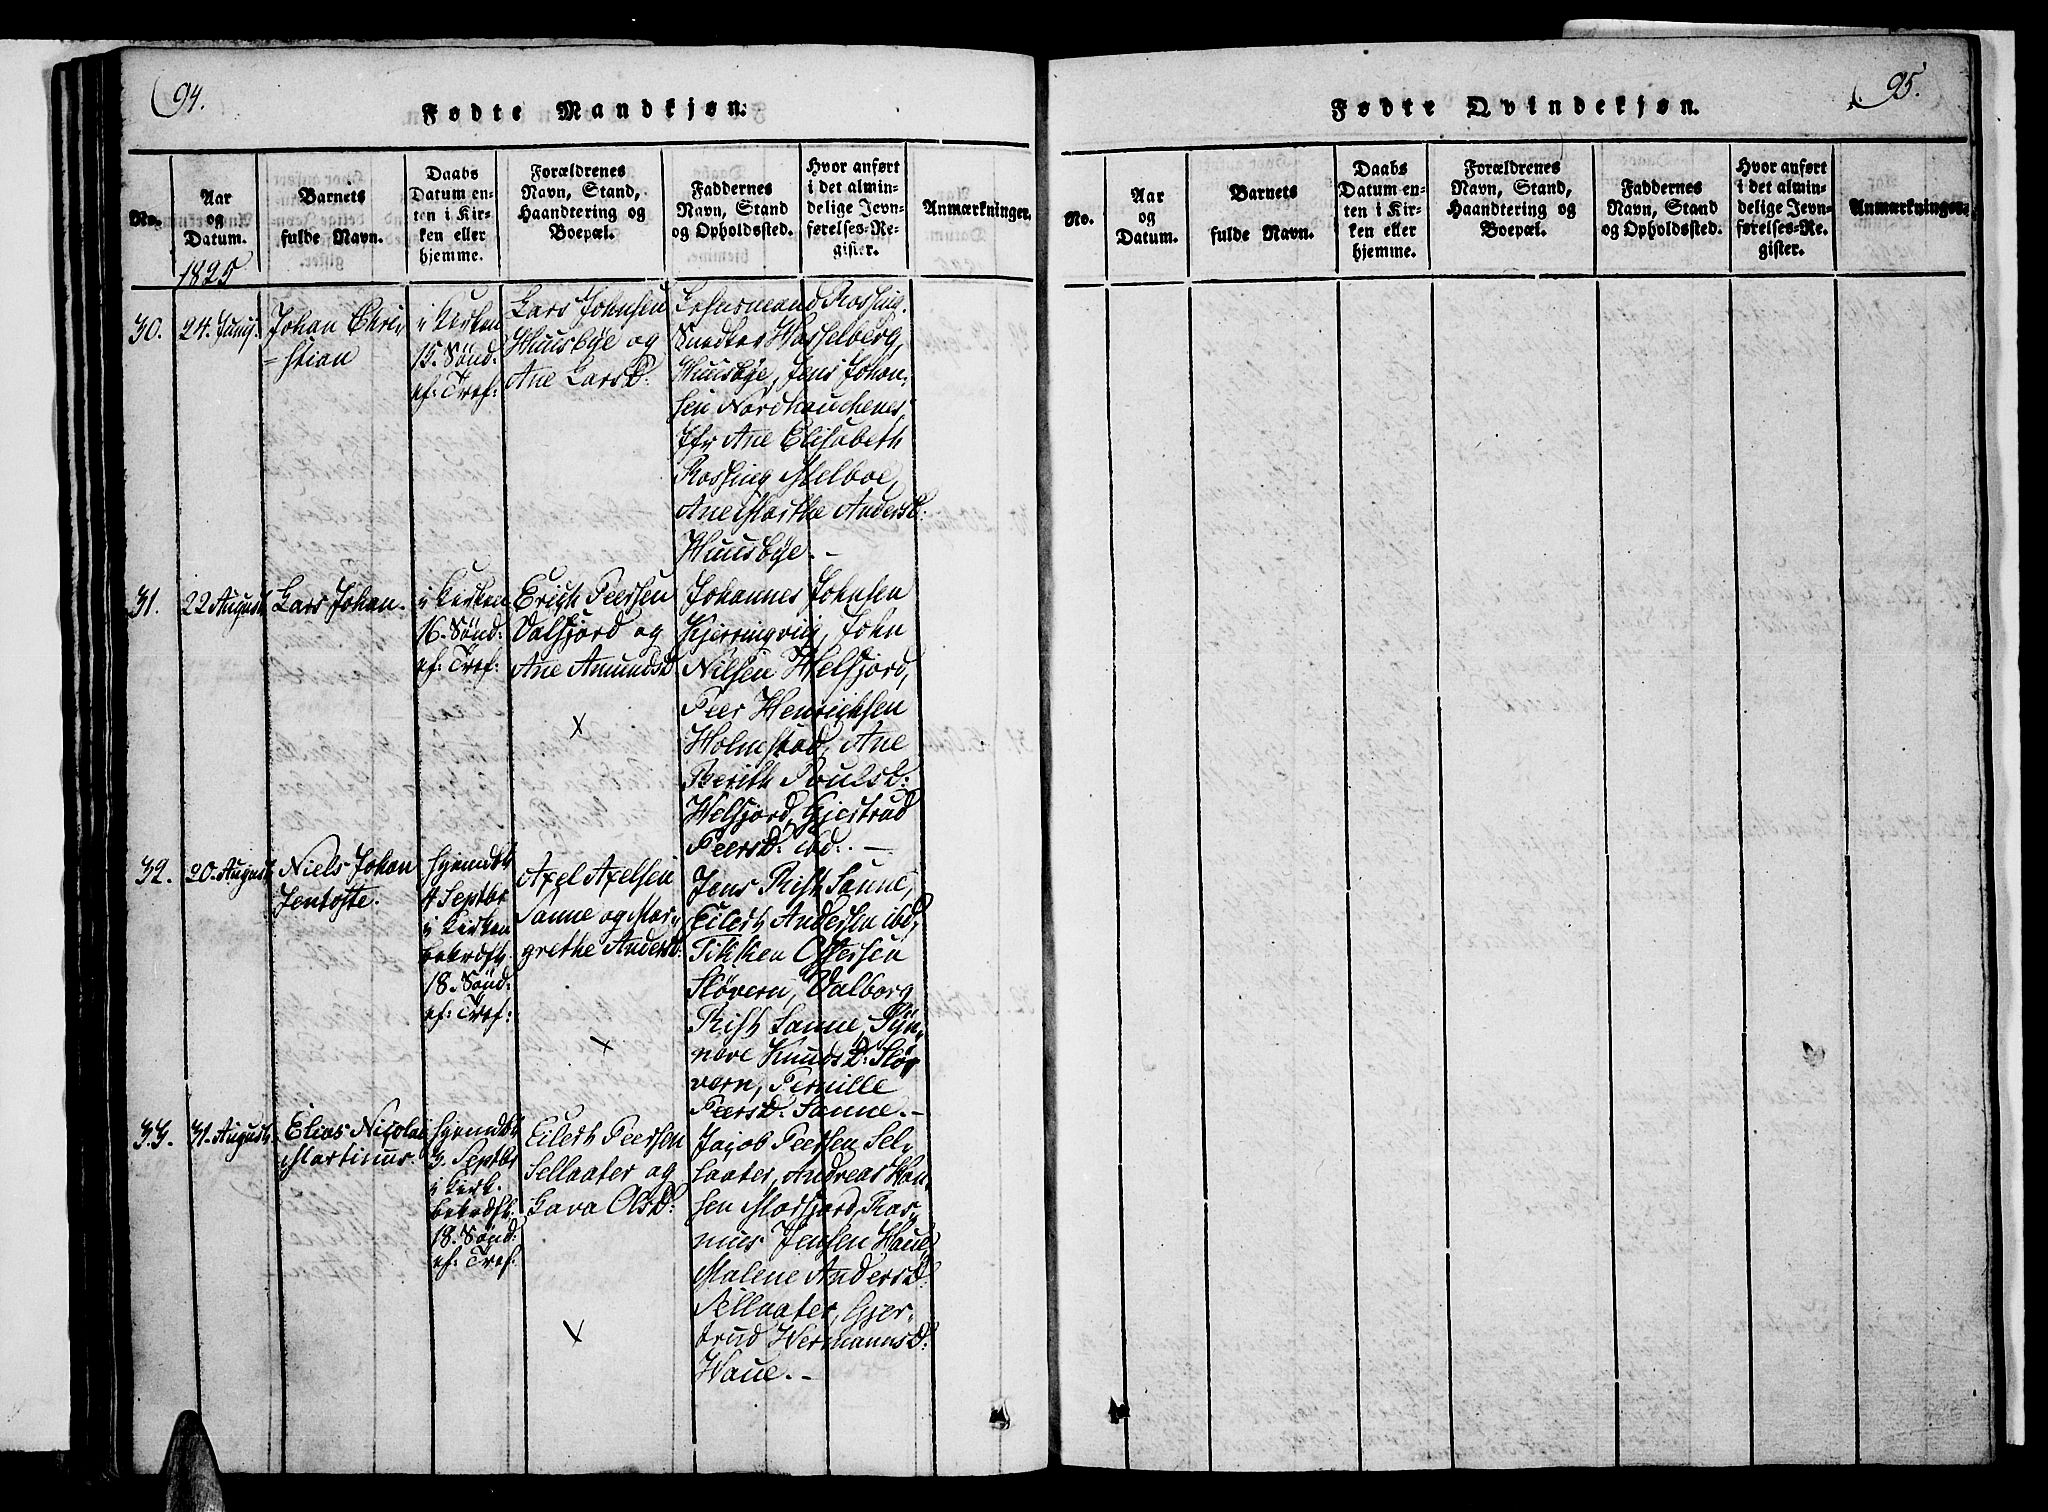 94.
Fødte Mandkjøn.
No.
Aar
og
Datum.
Barnets
fulde Navn.
Daabs
Datum en-
ten i Kir-
ken eller
hjemme.
Forældrenes
Navn, Stand,
Haandtering og
Boepæl.
Faddernes
Navn, Stand
og Opholdssted.
Hvor anført
i det almin-
delige Jevn-
førelses-Re-
gister.
Anmærkninger.
1825
30.
24. Junij.
Johan Chri-
-stian
i Kirken
15. Sönd:
ef: Tref:
Lars Johnsen
Huusbye og
Ane LarsD:
Lehnsmand Rosting.
Snedker Hasselberg,
Huusbye, Jens Johan-
sen Nordhauchenes,
Jfr Ane Elisabeth
Rosting Melboe,
Ane Marthe AndersD:
Huusbye. -
31.
22 August
Lars Johan.
i Kirken
16. Sönd:
ef: Tref:
Erich Peersen
Valfjord og
Ane AmundsD.
x
Johannes Johnsen
Kjerringviig, John
Nilsen Welfjord,
Peer Henrichsen
Holmstad, Ane
Berith PoulsD:
Welfjord, Gjertrud
PeersD: ibd: -
32.
20. August
Niels Johan
Jentofte.
hjemdöbt
4 Septbr
i Kirken
bekræft.
18. Sönd:
ef: Tref:
Axel Axelsen
Sanne og Mar-
grethe AndersD:
x
Jens Rist Sanne,
Eilert Andersen ibd,
Tikken Offersen
Slövern, Valborg
Rist Sanne, Syn-
neve KnudsD: Slö-
vern, Pernille
PeersD: Sanne. -
33.
31. August
Elias Nicolai
Martinus.
hjemdöbt
3. Septbr
i Kirk.
bekræft.
18. Sönd:
ef: Tref:
Eilert Peersen
Sellaater og
Lava OlsD:
x
Jacob Peersen Sel-
laater, Andreas Han-
sen Morfjord, Ras-
mus Jensen Haue,
Malene AndersD:
Sellaater, Gjer-
trud HermannsD:
Haue. -
95.
Fødte Qvindekjøn.
No.
Aar
og
Datum.
Barnets
fulde Navn.
Daabs
Datum en-
ten i Kir-
ken eller
hjemme.
Forældrenes
Navn, Stand,
Haandtering og
Boepæl.
Faddernes
Navn, Stand
og Opholdssted.
Hvor anført
i det almin-
delige Jevn-
førelses-Re-
gister.
Anmærkninger.